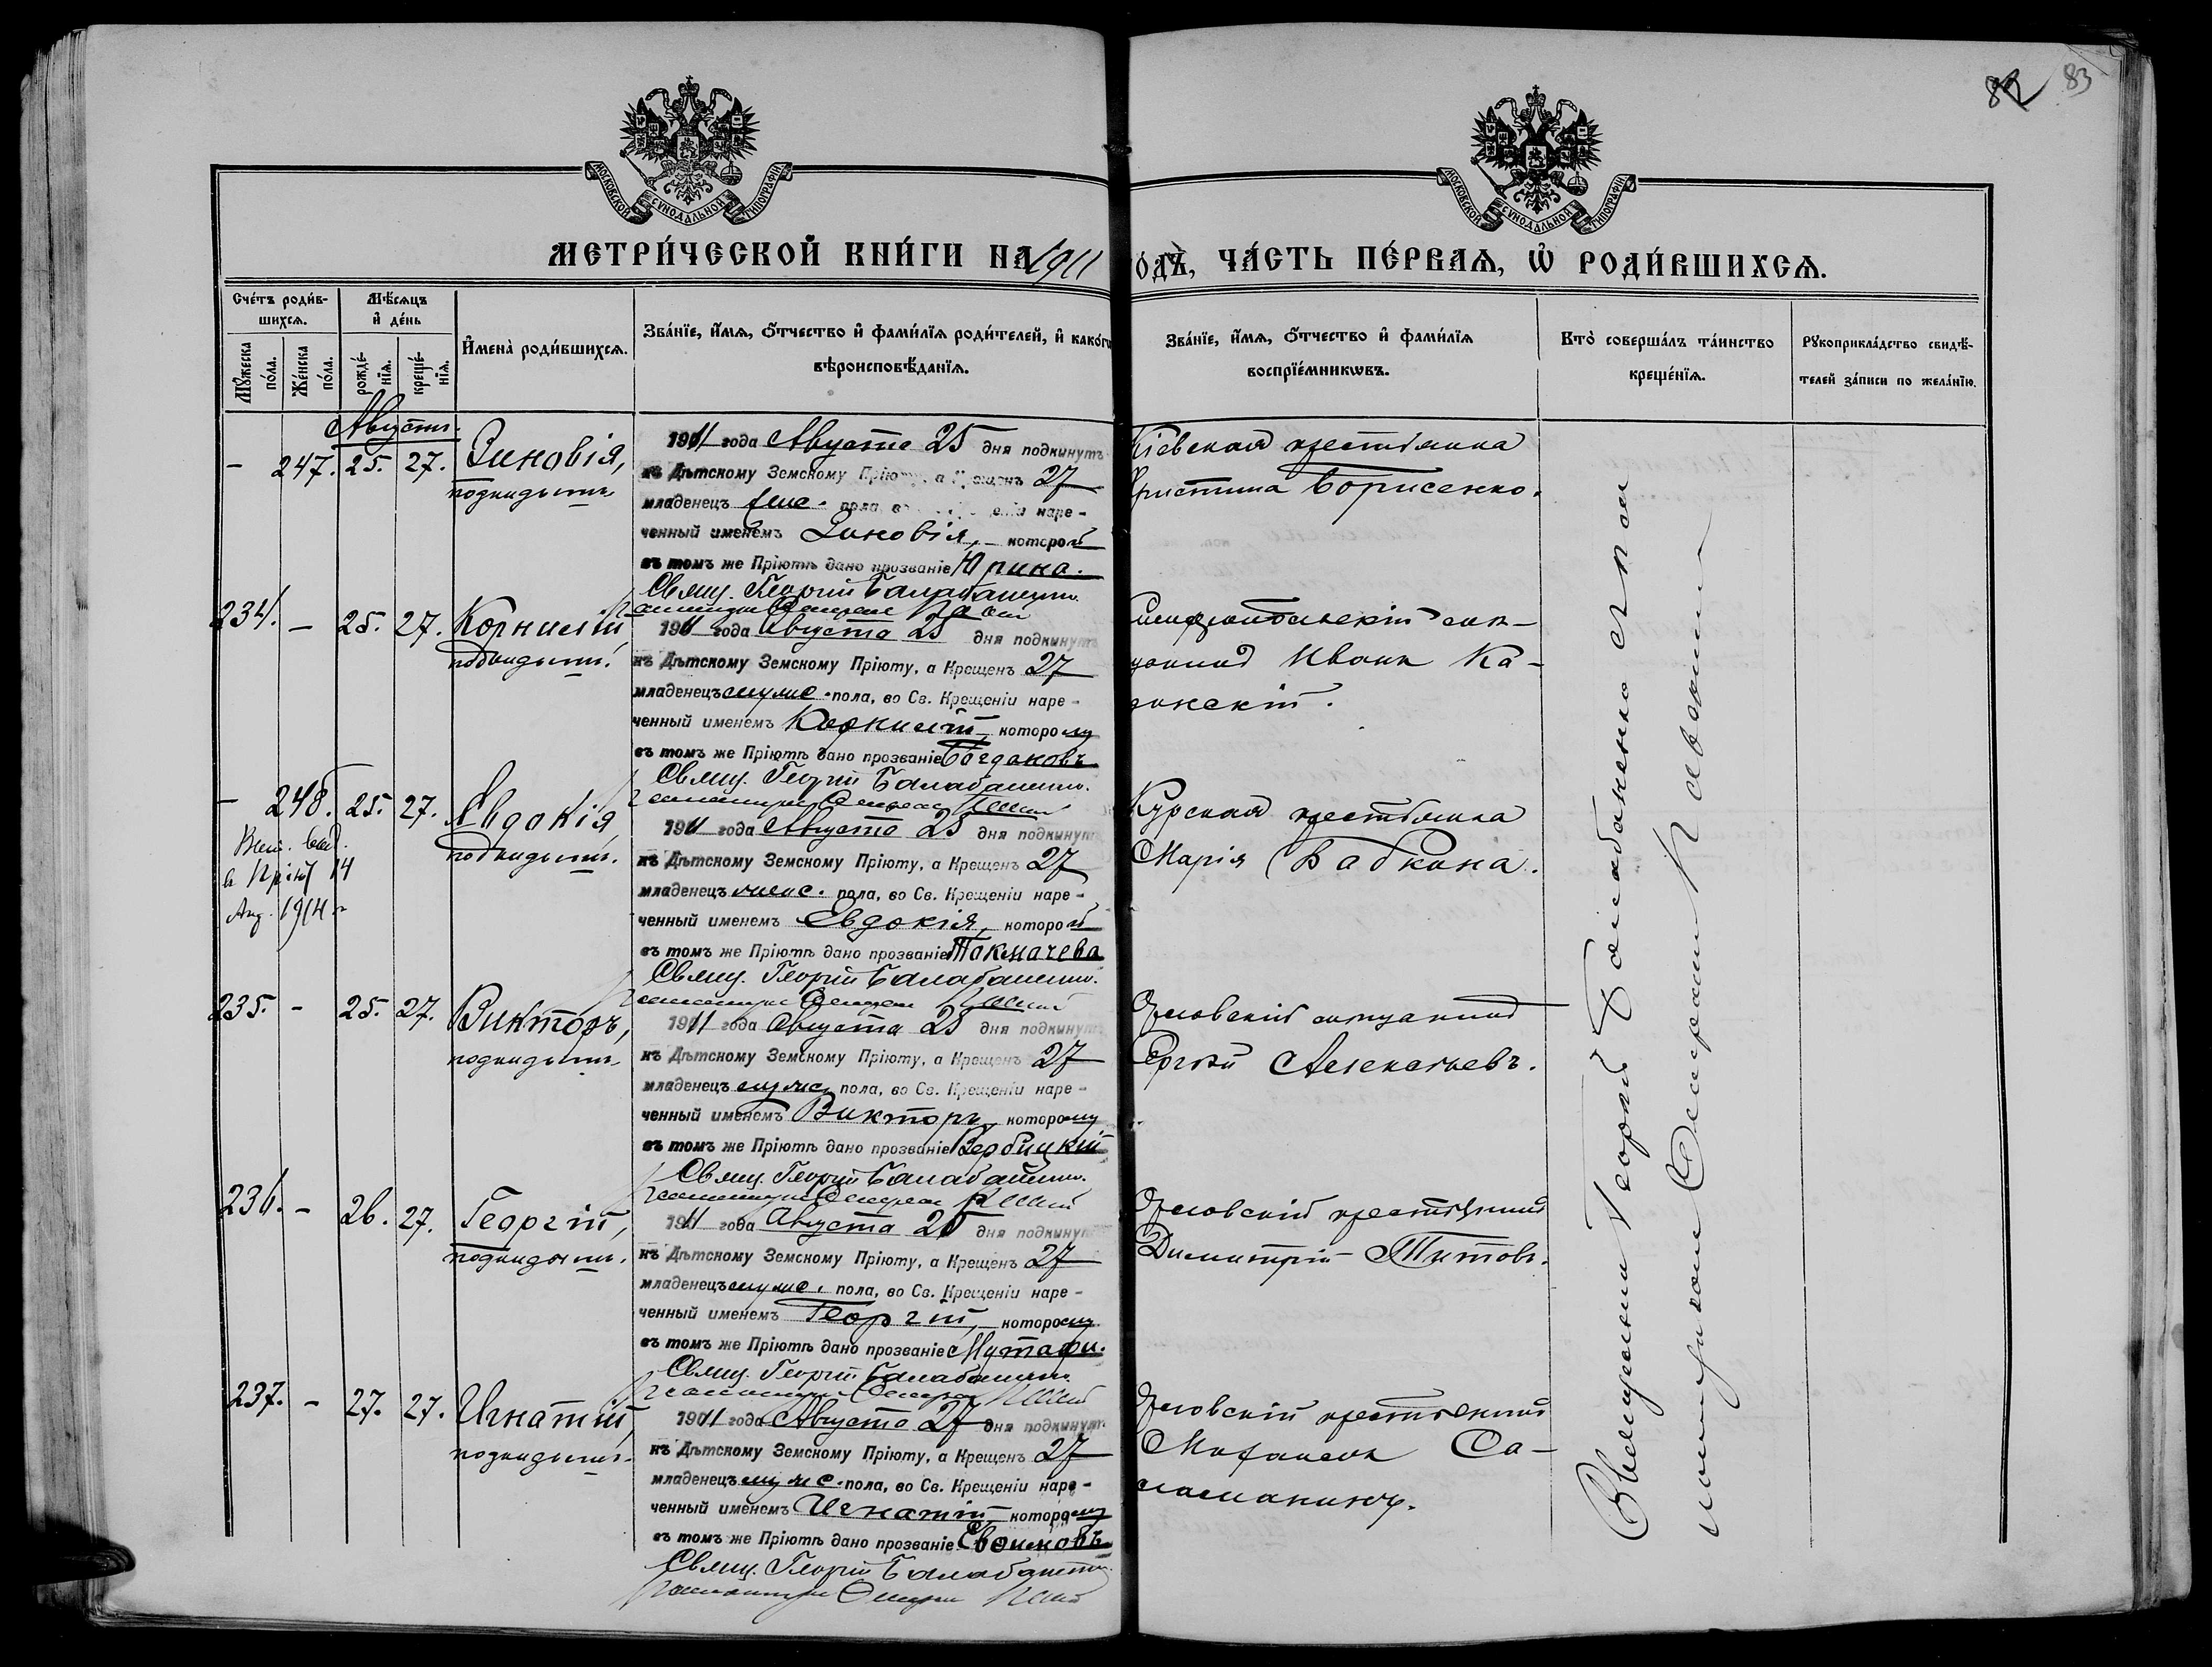 82 83
МОСКОВСКОЙ СѴНОДАЛЬНОЙ ТИПОГРАФІИ
МОСКОВСКОЙ СѴНОДАЛЬНОЙ ТИПОГРАФІИ
МЕТРИ́ЧЕСКОЙ КНИ́ГИ НА 1911
ОДЪ, ЧА́СТЬ ПЕ́РВАѦ, Ѡ РОДИ́ВШИХСѦ.
Сче́тъ роди́в-
шихсѧ.
Мѣ́сѧцъ
и҆ де́нь
Мꙋ́жеска по́ла.
Же́нска по́ла.
рожде́-нїѧ.
креще́-нїѧ.
И҆мена̀ роди́вшихсѧ.
Зва́нїе, и҆́мѧ, ѻ҆́тчество и҆ фами́лїѧ роди́телей, и҆ како́гѡ
вѣроисповѣ́данїѧ.
Зва́нїе, и҆́мѧ, ѻ҆́тчество и҆ фами́лїѧ
воспрїе́мникѡвъ.
Кто̀ соверша́лъ та́инство
креще́нїѧ.
Рꙋкоприкла́дство свидѣ́-
телей за́писи по жела́нїю.
Августъ.
- 247. 25. 27. Зиновія,
подкидышъ
1911 года Августа 25 дня подкинутъ
къ Дѣтскому Земскому Пріюту, а Крещенъ 27
младенецъ жен. пола, во наре-
ченный именемъ Зиновія, которой
въ томъ же Пріютѣ дано прозваніе Юрина.
Свящ. Георгій Балабаненко
Кіевская крестьянка
Христина Борисенко.
234. - 25. 27. Корнилій,
подкидышъ.
1911 года Августа 25 дня подкинутъ
къ Дѣтскому Земскому Пріюту, а Крещенъ 27
младенецъ муже. пола, во Св. Крещеніи наре-
ченный именемъ Корнилій, которому
въ томъ же Пріютѣ дано прозваніе Богдановъ
Свящ. Георгій Балабаненко.
Симферопольскій мѣ-
щанинъ Иванъ Ка-
- 248. 25. 27. Евдокія,
подкидышъ.
в Пріют 14
Апр. 1914 г
1911 года Августа 25 дня подкинутъ
къ Дѣтскому Земскому Пріюту, а Крещенъ 27
младенецъ женс. пола, во Св. Крещеніи наре-
ченный именемъ Евдокія, которой
въ томъ же Пріютѣ дано прозваніе Токмачева
Свящ. Георгій Балабаненко.
Курская крестьянка
Марія Бабкина.
235. - 25. 27. Викторъ,
подкидышъ
1911 года Августа 25 дня подкинутъ
къ Дѣтскому Земскому Пріюту, а Крещенъ 27
младенецъ муже. пола, во Св. Крещеніи наре-
ченный именемъ Викторъ, которому
въ томъ же Пріютѣ дано прозваніе Вербицкій
Свящ. Георгій Балабаненко.
Орловскій мѣщанинъ
Сергѣй Алексѣевъ.
236. - 26. 27. Георгій,
подкидышъ.
1911 года Августа 25 дня подкинутъ
къ Дѣтскому Земскому Пріюту, а Крещенъ 27
младенецъ муже. пола, во Св. Крещеніи наре-
ченный именемъ Георгій, которому
въ томъ же Пріютѣ дано прозваніе Мутафи.
Свящ. Георгій Балабаненко
Орловскій крестьянинъ
Димитрій Титовъ.
237. - 27. 27. Игнатій,
подкидышъ.
1911 года Августа 27 дня подкинутъ
къ Дѣтскому Земскому Пріюту, а Крещенъ 27
младенецъ муже. пола, во Св. Крещеніи наре-
ченный именемъ Игнатій, которому
въ томъ же Пріютѣ дано прозваніе
Свящ. Георгій Балабаненко
Орловскій крестьянинъ
Михаилъ
Священникъ Георгій Балабаненко съ